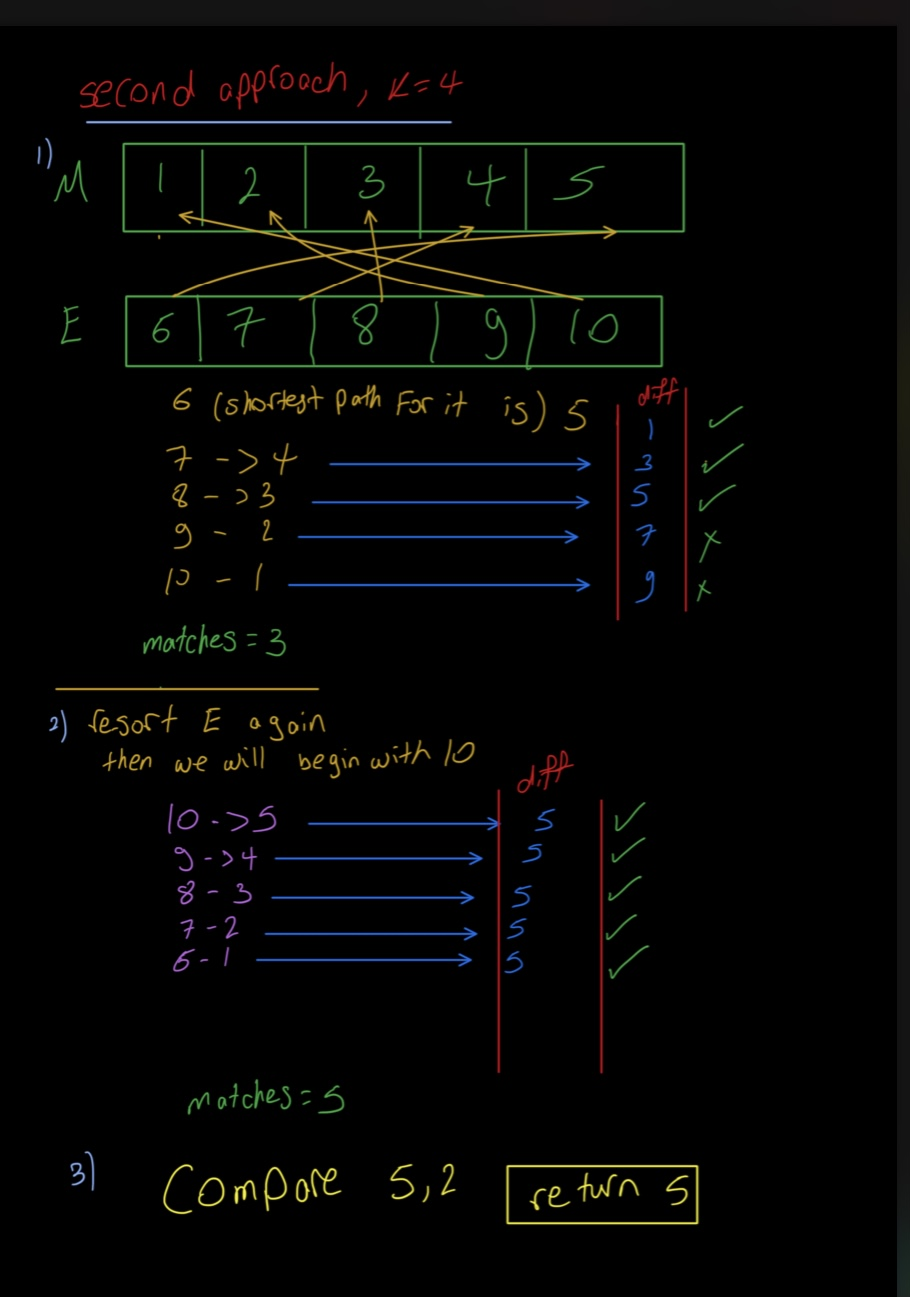 second approach, K=4
1)
M 1 2 3 4 5
E 6 7 8 9 10
6 (shortest path For it is) 5
diff
1 ✓
7 -> 4 3 ✓
8 -> 3 5 ✓
9 - 2 7 x
10 - 1 9 x
matches = 3
2) resort E again
then we will begin with 10
diff
10 -> 5 5 ✓
9 -> 4 5 ✓
8 - 3 5 ✓
7 - 2 5 ✓
6 - 1 5 ✓
matches = 5
3) Compare 5,2 return 5